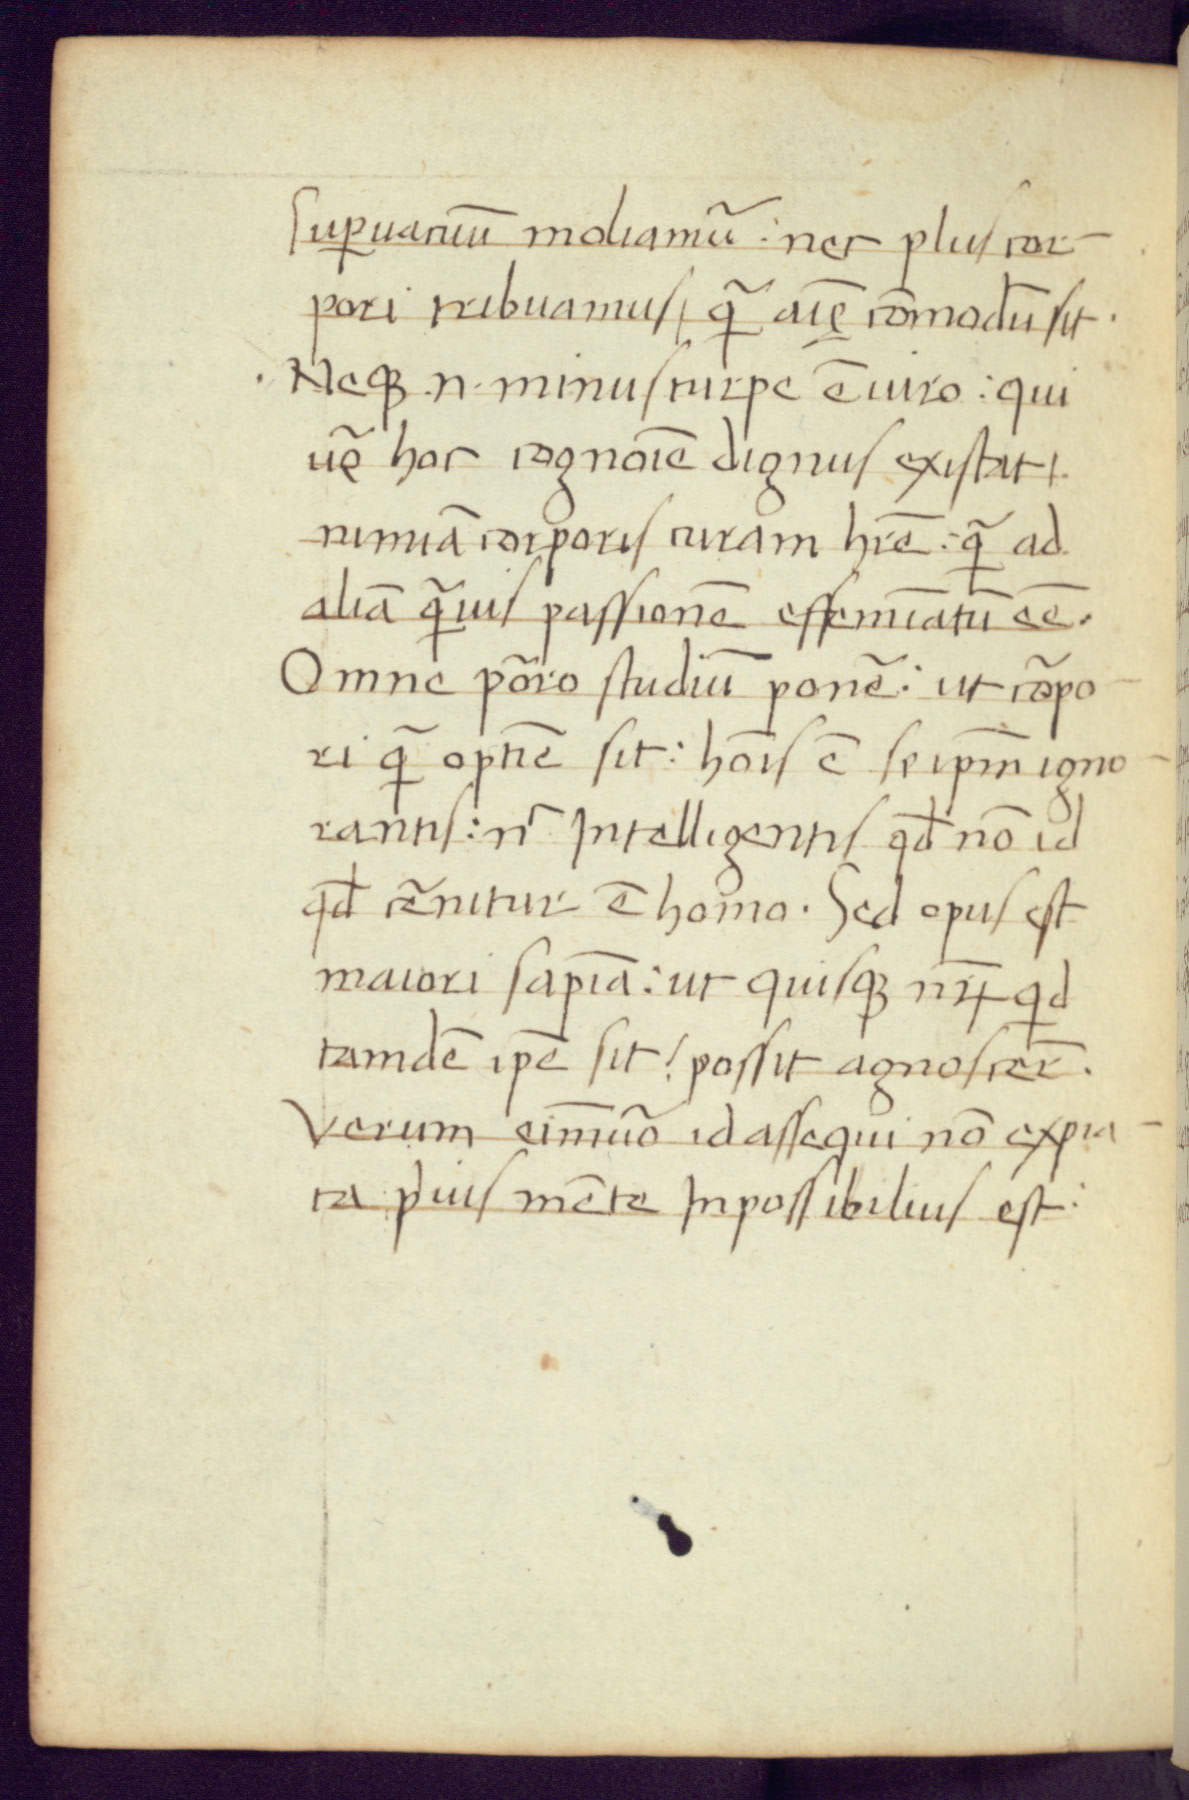 Suꝑuacuū moliamur̃: nec plus cor-
pori tribuamus/ q̃ aīę cōmodū sit.
Neqꝫ .n. minus turpe ē uiro: qui
ur̃ę hoc cognoīe dignus existat/.
nimiā corporis curam hr̄e: q̃ ad
aliā q̃uis passionē effeminatū eē.
Omne poro studiū ponẽ: ut corpo-
ri q̃ optīe sit: hoīs ē seipm̄ igno-
rantis: nc̄ Intelligentis qd̄ nō id
qd̄ cẽnitur ē homo. Sed opus est
maiori sapīa: ut quisqꝫ nr̄ꝝ qid
tamdē ipē sit/ possit agnoscer̄.
Verum eīmuō id assequi nō expia-
ta pius mēte Inpossibilius est: